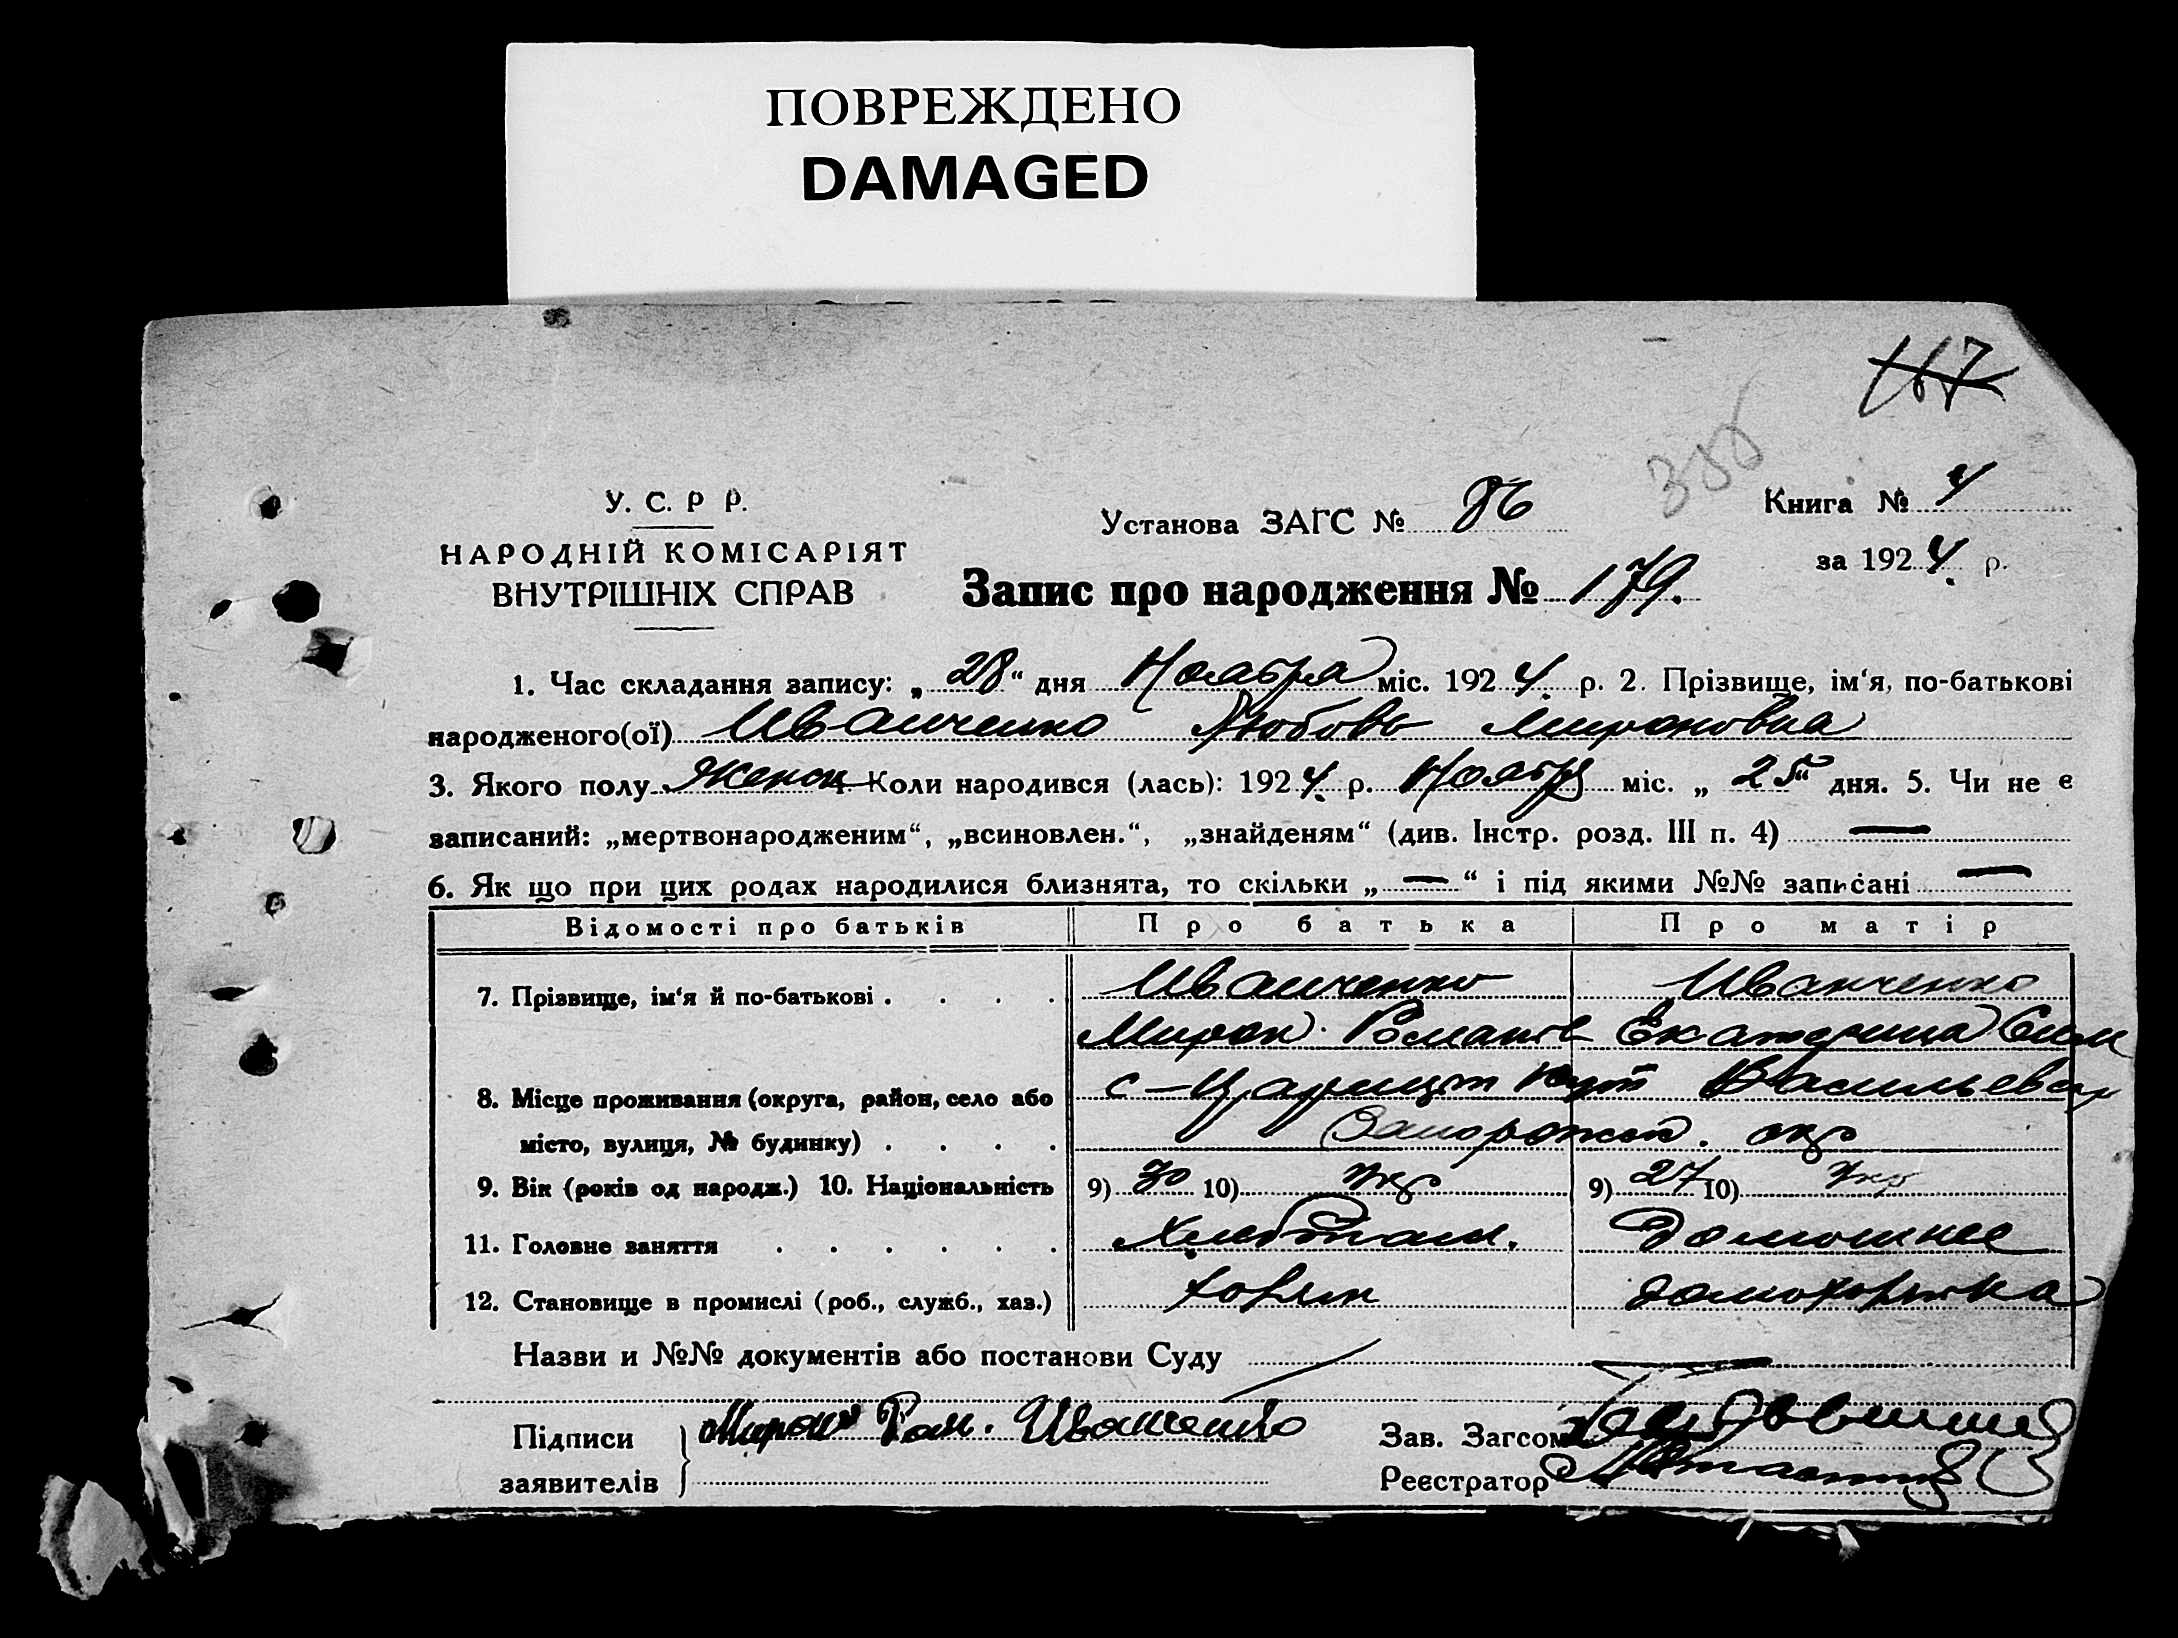 ПОВРЕЖДЕНО
DAMAGED
117
У. С. Р Р.
НАРОДНІЙ КОМІСАРІЯТ
ВНУТРІШНІХ СПРАВ
Установа ЗАГС № 86
Книга № 4
за 1924 р.
Запис про народження № 179.
1. Час складання запису: „ 28 “ дня Ноября міс. 1924. р. 2. Прізвище, ім‘я, по-батькові
народженого(ої) Иванченко Любовь Мироновна
3. Якого полу Женск 4 Коли народився (лась): 1924. р. Ноябр міс. „ 25 “ дня. 5. Чи не є
записаний: „мертвонародженим“, „всиновлен.“, „знайденям“ (див. Інстр. розд. III п. 4) —
6. Як що при цих родах народилися близнята, то скільки „ — “ і під якими №№ записані —
Відомості про батьків Про батька Про матір
7. Прізвище, ім‘я й по-батькові . . . . Иванченко Иванченко
Мирон Романов Екатерина Сим
8. Місце проживання (округа, район, село або с – Царицын Кут Васильевск
місто, вулиця, № будинку) . . . . Запорожск. окр
9. Вік (років од народж.) 10. Національність 9) 30 10) Укр 9) 27 10) Укр
11. Головне заняття . . . . . . Хлебопаш. Домошнее
12. Становище в промислі (роб., служб., хаз.) хозяин домохозяйка
Назви и №№ документів або постанови Суду
Підписи заявителів Мирон Ром. Иванченко
Зав. Загсом
Реєстратор